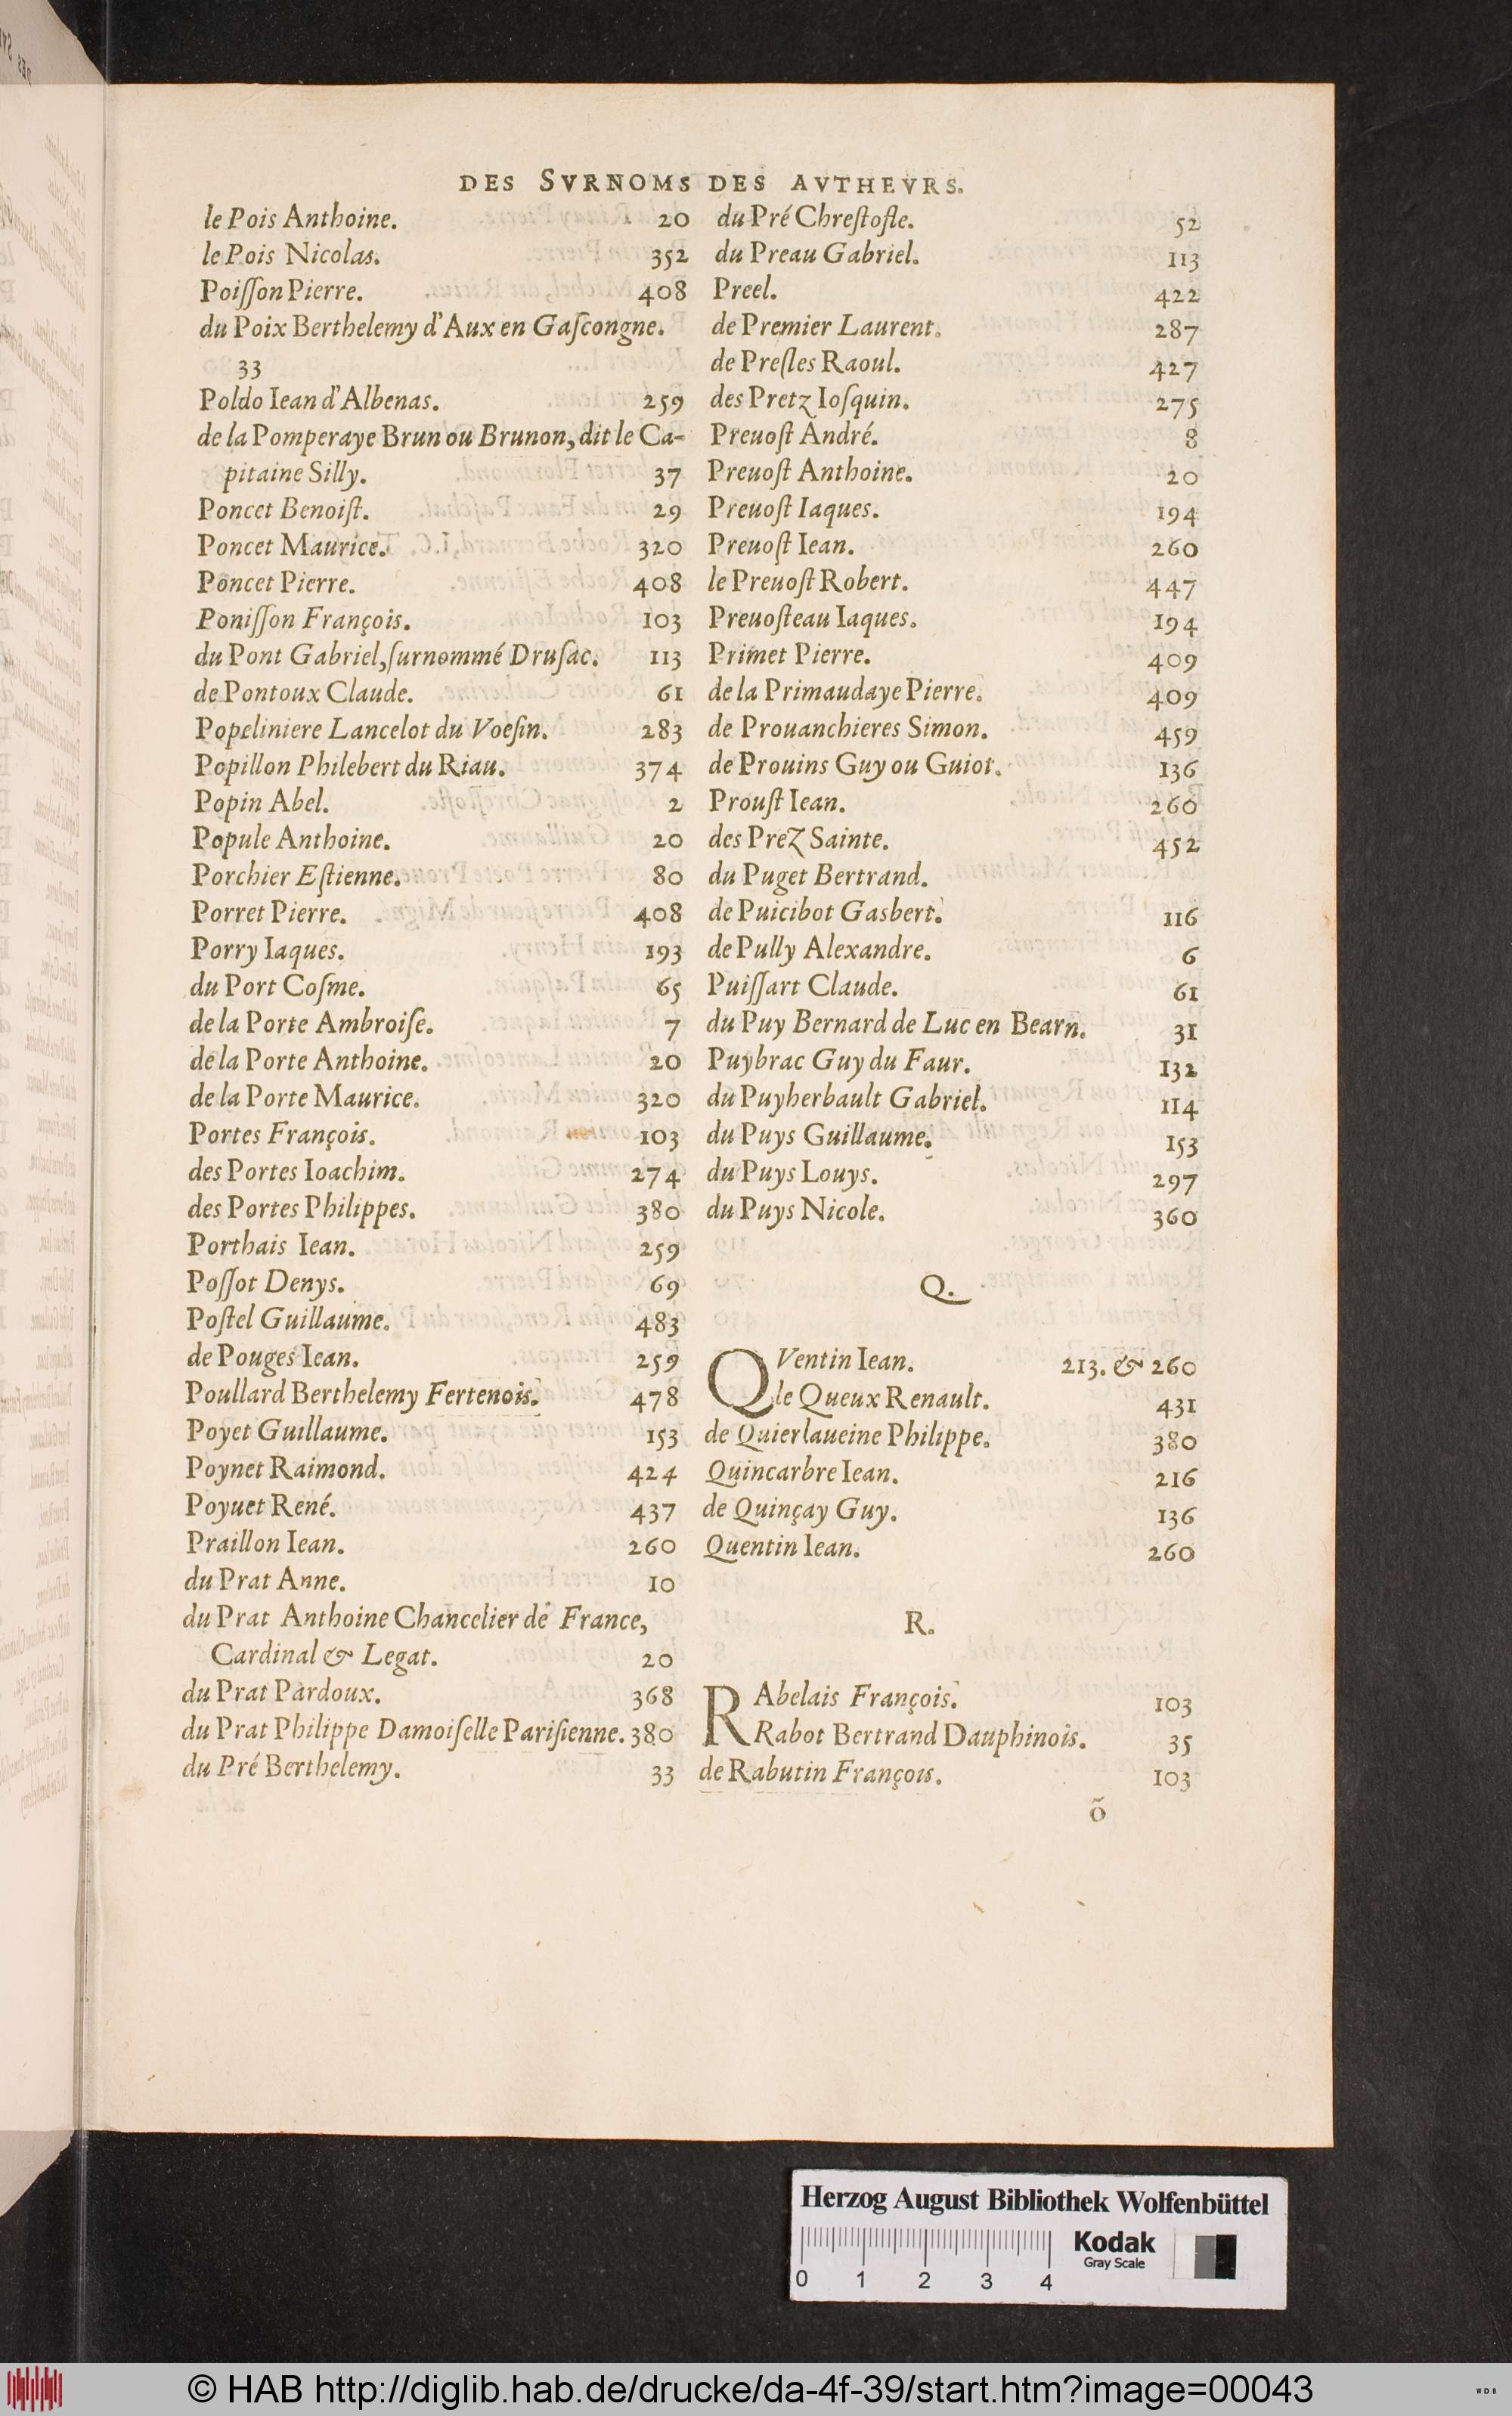 DES SVRNOMS DES AVTHEVRS.
le Pois Anthoine. 20
le Pois Nicolas. 352
Poiſſon Pierre. 408
du Poix Berthelemy d'Aux en Gaſcongne.
33
Poldo Iean d'Albenas. 259
de la Pomperaye Brun ou Brunon, dit le Ca-
pitaine Silly. 37
Poncet Benoiſt. 29
Poncet Maurice. 320
Poncet Pierre. 408
Poniſſon François. 103
du Pont Gabriel, ſurnommé Druſac. 113
de Pontoux Claude. 61
Popeliniere Lancelot du Voeſin. 283
Popillon Philebert du Riau. 374
Popin Abel. 2
Popule Anthoine. 20
Porchier Eſtienne. 80
Porret Pierre. 408
Porry Iaques. 193
du Port Coſme. 65
de la Porte Ambroiſe. 7
de la Porte Anthoine. 20
de la Porte Maurice. 320
Portes François. 103
des Portes Ioachim. 274
des Portes Philippes. 380
Porthais Iean. 259
Poſſot Denys. 69
Poſtel Guillaume. 483
de Pouges Iean. 259
Poullard Berthelemy Fertenois. 478
Poyet Guillaume. 153
Poynet Raimond. 424
Poyuet René. 437
Praillon Iean. 260
du Prat Anne. 10
du Prat Anthoine Chancelier de France,
Cardinal & Legat. 20
du Prat Pardoux. 368
du Prat Philippe Damoiſelle Pariſienne. 380
du Pré Berthelemy. 33
du Pré Chreſtofle. 52
du Preau Gabriel. 113
Preel. 422
de Premier Laurent. 287
de Preſles Raoul. 427
des Pretz Ioſquin. 275
Preuoſt André. 8
Preuoſt Anthoine. 20
Preuoſt Iaques. 194
Preuoſt Iean. 260
le Preuoſt Robert. 447
Preuoſteau Iaques. 194
Primet Pierre. 409
de la Primaudaye Pierre. 409
de Prouanchieres Simon. 459
de Prouins Guy ou Guiot. 136
Prouſt Iean. 260
des Prez Sainte. 452
du Puget Bertrand.
de Puicibot Gasbert. 116
de Pully Alexandre. 6
Puiſſart Claude. 61
du Puy Bernard de Luc en Bearn. 31
Puybrac Guy du Faur. 132
du Puyherbault Gabriel. 114
du Puys Guillaume. 153
du Puys Louys. 297
du Puys Nicole. 360
Q.
QVentin Iean. 213. & 260
le Queux Renault. 431
de Quierlaueine Philippe. 380
Quincarbre Iean. 216
de Quinçay Guy. 136
Quentin Iean. 260
R.
RAbelais François. 103
Rabot Bertrand Dauphinois. 35
de Rabutin François. 103
õ
Herzog August Bibliothek Wolfenbüttel
Kodak
Gray Scale
0 1 2 3 4
© HAB http://diglib.hab.de/drucke/da-4f-39/start.htm?image=00043
WDB